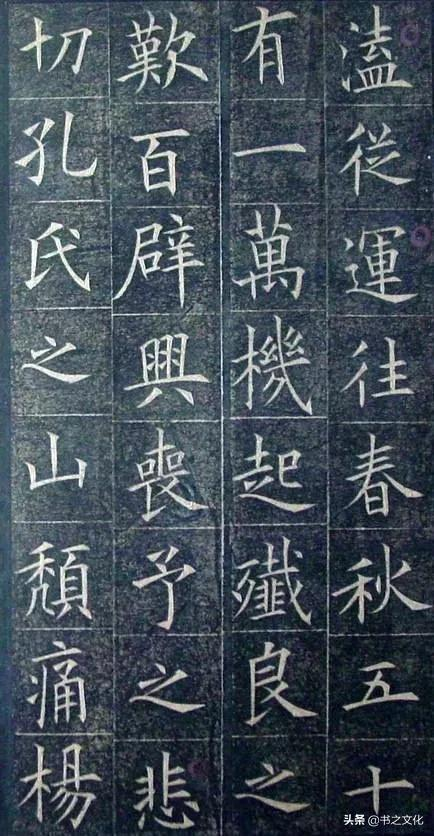 溘從運往春秋五十
有一萬機起殲良之
歎百辟興喪予之悲
切孔氏之山頹痛楊
头条 @书之文化